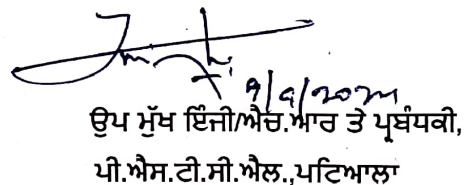 9/9/2024
ਉਪ ਮੁੱਖ ਇੰਜੀ/ਐਚ.ਆਰ ਤੇ ਪ੍ਰਬੰਧਕੀ,
ਪੀ.ਐਸ.ਟੀ.ਸੀ.ਐਲ.,ਪਟਿਆਲਾ